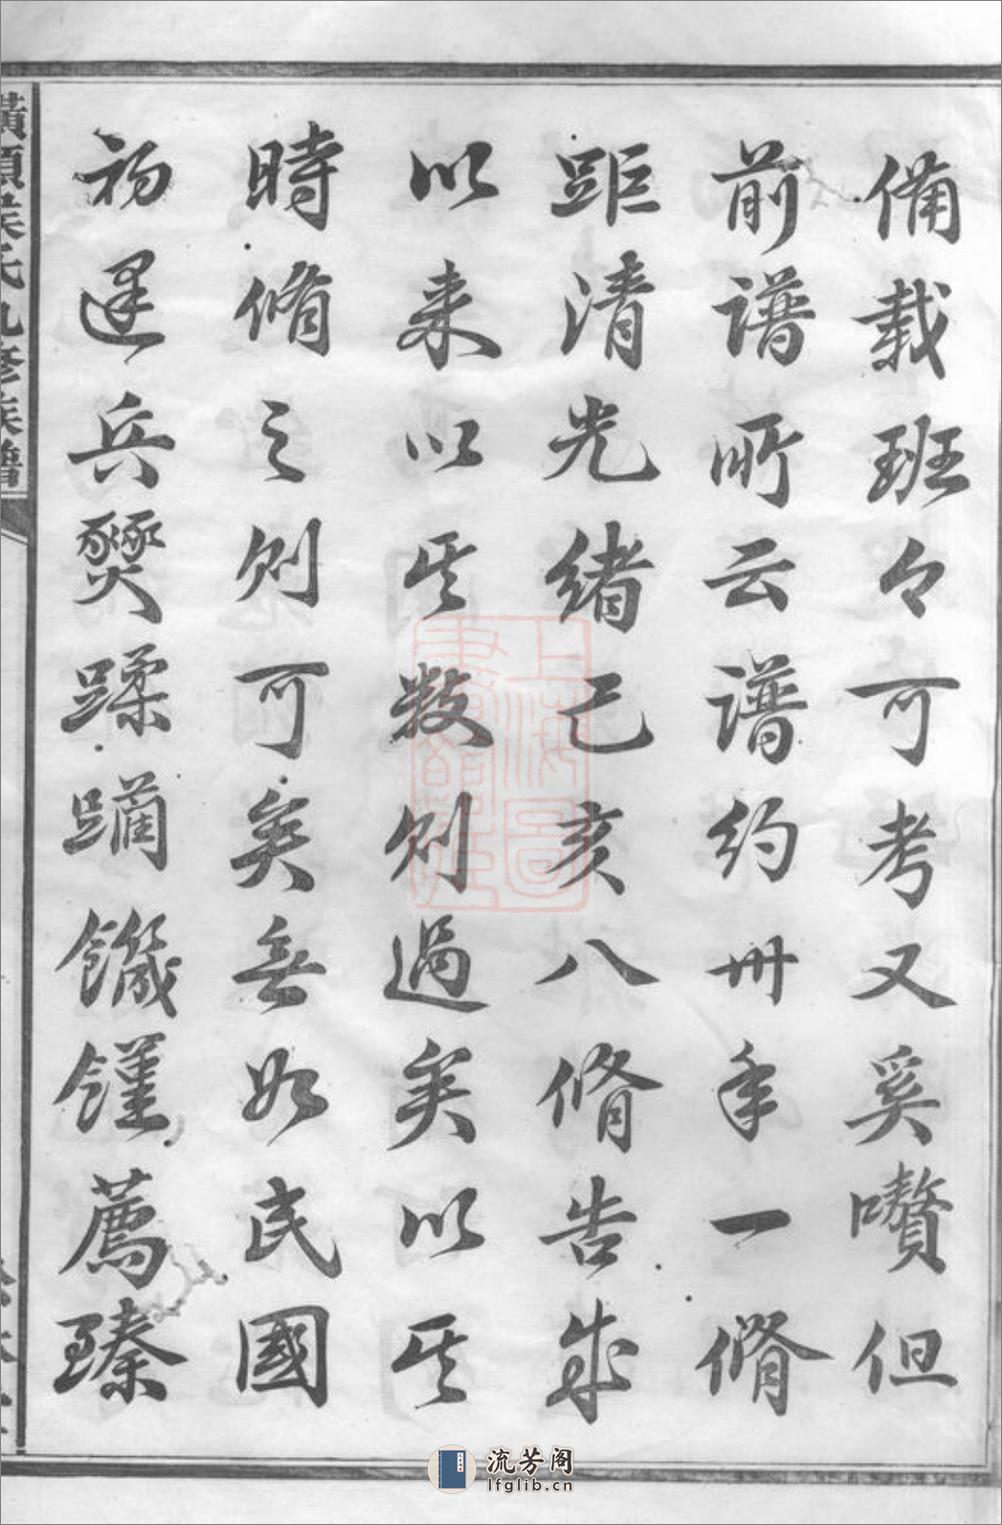 備載班々可考又奚囋但
前譜所云譜約卅年一脩
距清光緒己亥八脩告成
以来以其数則過矣以其
時脩之則可矣無如民國
初遅兵燹蹂躏饑饉薦臻
氏九修族譜
上海圖書館藏
流芳阁
lfglib.cn